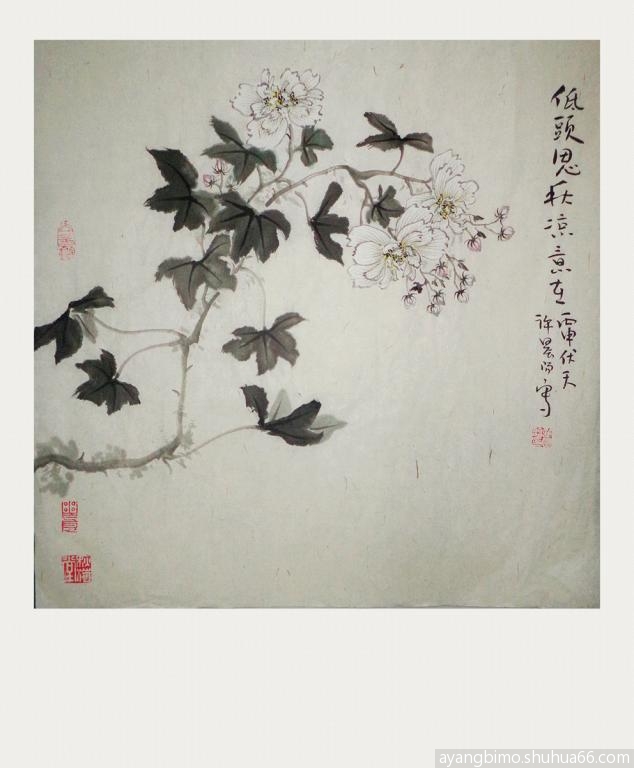 低頭思秋涼意在
丙申伏天
許晨阳写
ayangbimo.shuhua66.com